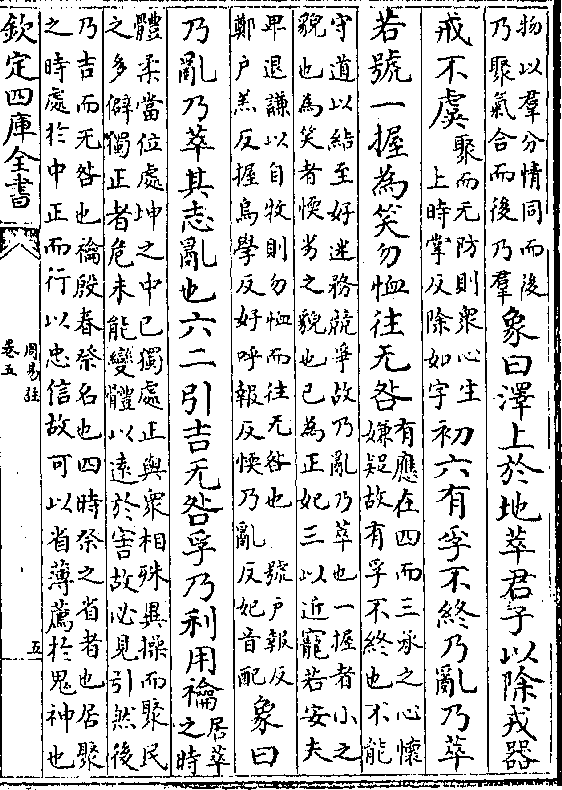 物以羣分情同而後乃聚氣合而後乃羣象曰澤上於地萃君子以除戎器
戒不虞聚而无防則衆心生上時掌反除如字初六有孚不終乃亂乃萃
若號一握為笑勿恤往无咎有應在四而三承之心懷嫌疑故有孚不終也不能
守道以結至好迷務競爭故乃亂乃萃也一握者小之
貌也為笑者愞劣之貌也已為正妃三以近寵若安夫
卑退謙以自牧則勿恤而往无咎也 號户報反
鄭户羔反握烏學反好呼報反愞乃亂反妃音配象曰
乃亂乃萃其志亂也六二引吉无咎孚乃利用禴居萃之時
體柔當位處坤之中已獨處正與衆相殊異操而聚民
之多僻獨正者危未能變體以遠於害故必見引然後
乃吉而无咎也禴殷春祭名也四時祭之省者也居聚
之時處於中正而行以忠信故可以省薄薦於鬼神也
欽定四庫全書
周易註
卷五
五